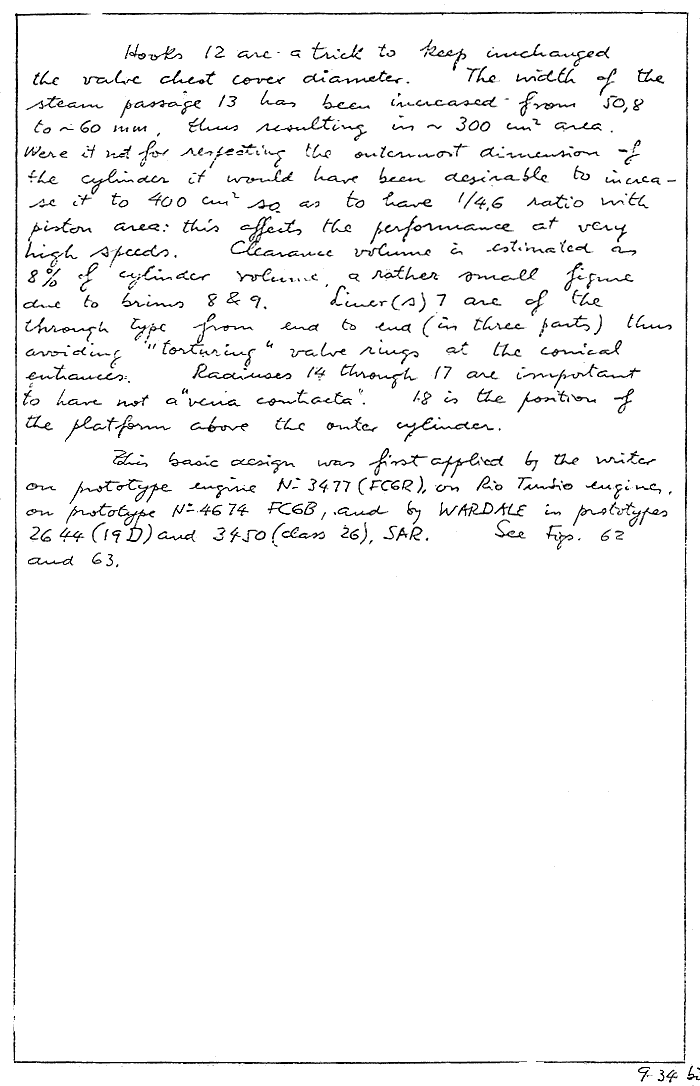 Hooks 12 are a trick to keep unchanged
the valve chest cover diameter. The width of the
steam passage 13 has been increased from 50,8
to ~ 60 mm, thus resulting in ~ 300 cm² area.
Were it not for respecting the outermost dimension of
the cylinder it would have been desirable to increa-
se it to 400 cm² so as to have 1/4,6 ratio with
piston area: this affects the performance at very
high speeds. Clearance volume is estimated as
8% of cylinder volume, a rather small figure
due to brims 8 & 9. Liner(s) 7 are of the
through type from end to end (in three parts) thus
avoiding "torturing" valve rings at the conical
entrances. Radiuses 14 through 17 are important
to have not a "vena contacta". 18 is the position of
the platform above the outer cylinder.
This basic design was first applied by the writer
on prototype engine Nº 3477 (FCGR), on Rio Turbio engines,
on prototype Nº 4674 FCGB, and by WARDALE in prototypes
2644 (19D) and 3450 (class 26), SAR. See Figs. 62
and 63.
9-34 bi